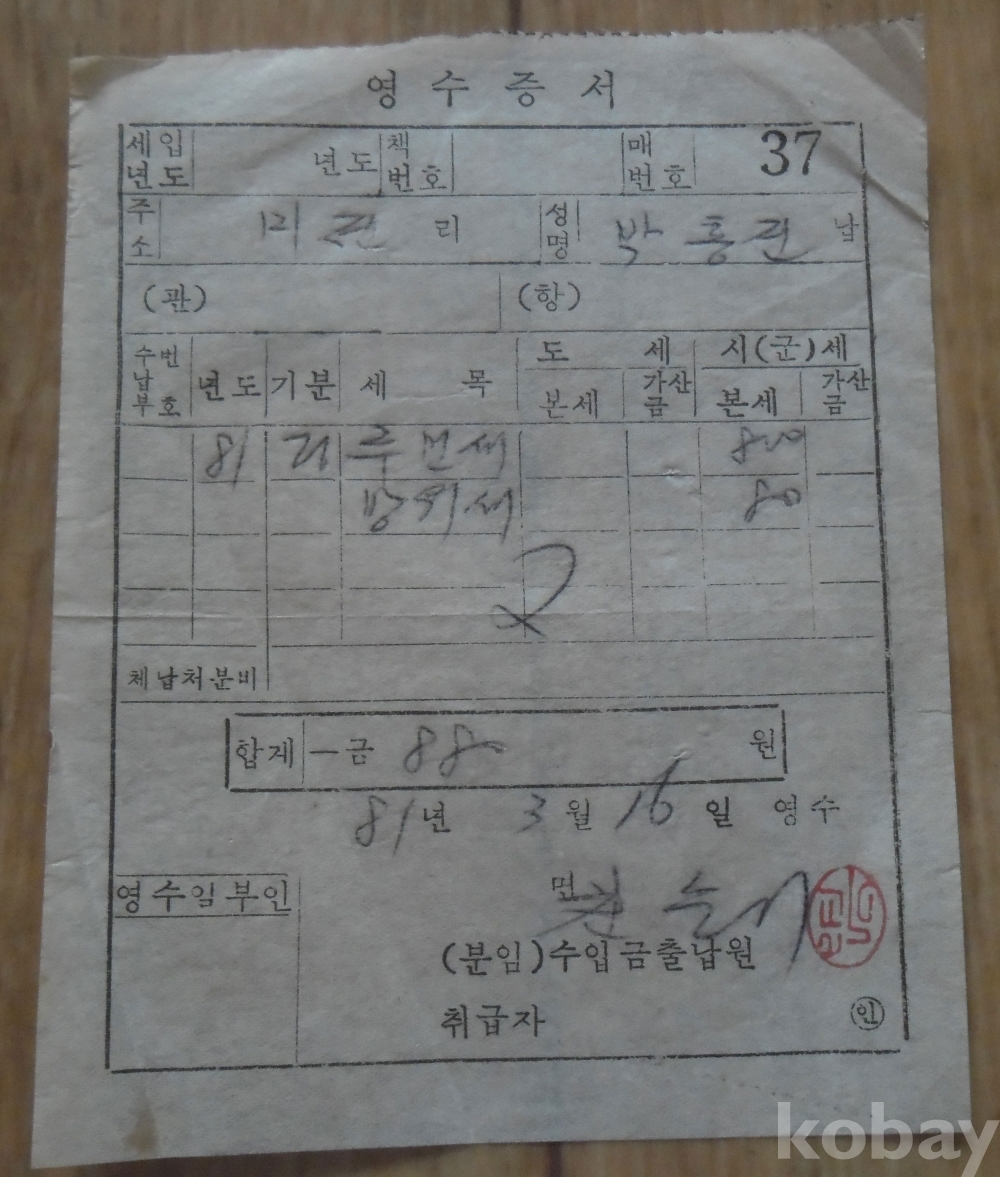 영수증서
세입년도 년도 책번호 매번호 37
주소 리 성명 박흥권 납
(관) (항)
수납부번호 년도 기분 세목 도세 시(군)세
본세 가산금 본세 가산금
81 주민세 800
방위세 80
체납처분비
합계 一금 880 원
81년 3월 16일 영수
영수일부인
면
(분임)수입금출납원
취급자 인
kobay